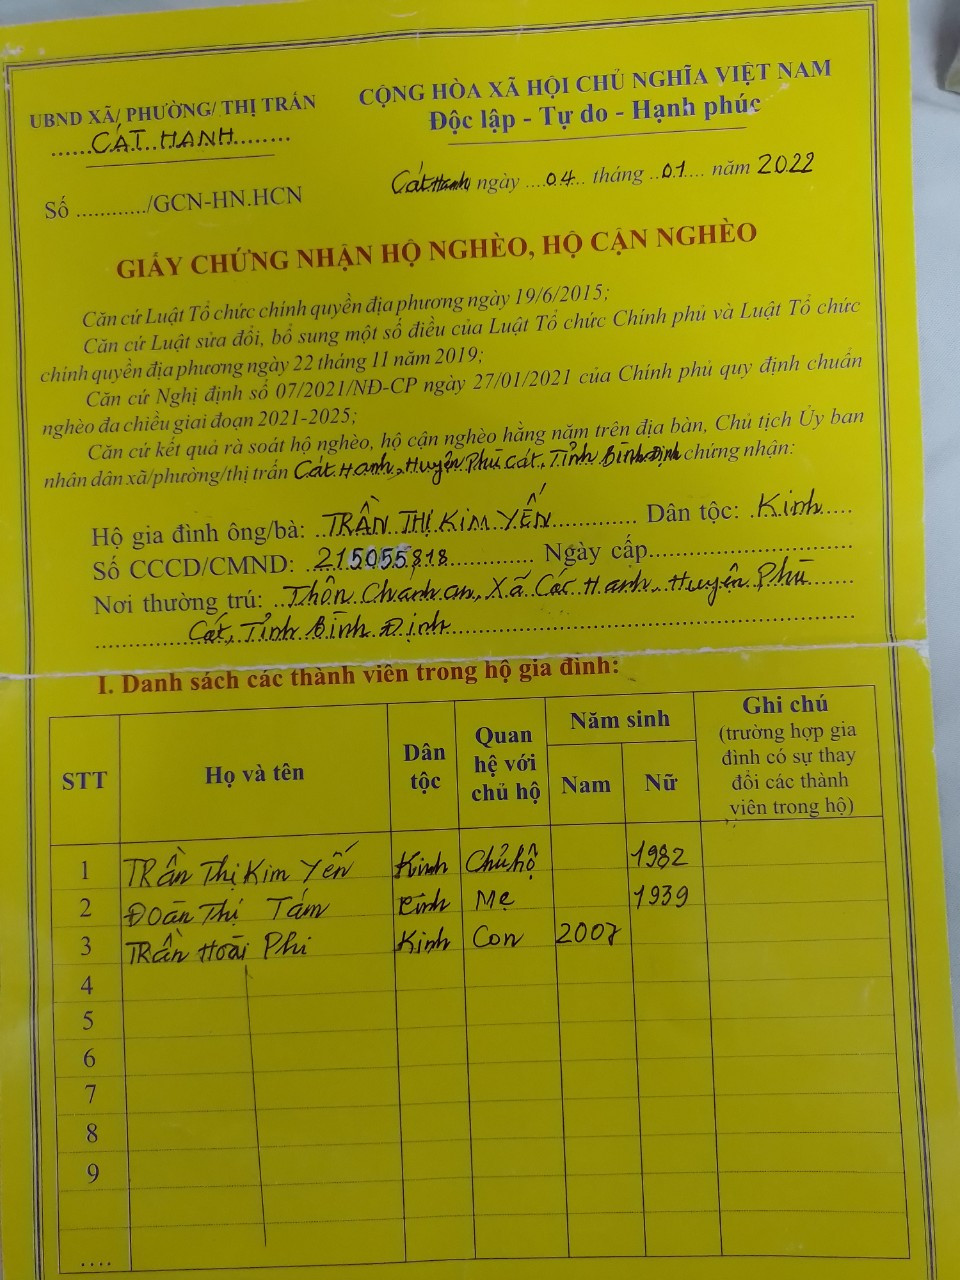 UBND XÃ/ PHƯỜNG/ THỊ TRẤN
CÁT HANH
CỘNG HÒA XÃ HỘI CHỦ NGHĨA VIỆT NAM
Độc lập - Tự do - Hạnh phúc
Số ............/GCN-HN.HCN
Cát Hanh ngày ....04... tháng ..01.... năm 2022
GIẤY CHỨNG NHẬN HỘ NGHÈO, HỘ CẬN NGHÈO
Căn cứ Luật Tổ chức chính quyền địa phương ngày 19/6/2015;
Căn cứ Luật sửa đổi, bổ sung một số điều của Luật Tổ chức Chính phủ và Luật Tổ chức
chính quyền địa phương ngày 22 tháng 11 năm 2019;
Căn cứ Nghị định số 07/2021/NĐ-CP ngày 27/01/2021 của Chính phủ quy định chuẩn
nghèo đa chiều giai đoạn 2021-2025;
Căn cứ kết quả rà soát hộ nghèo, hộ cận nghèo hằng năm trên địa bàn, Chủ tịch Ủy ban
nhân dân xã/phường/thị trấn Cát Hanh, Huyện Phù Cát, Tỉnh Bình Định chứng nhận:
Hộ gia đình ông/bà: TRẦN THỊ KIM YẾN Dân tộc: Kinh
Số CCCD/CMND: 215055818 Ngày cấp
Nơi thường trú: Thôn Chánh an, Xã Cát Hanh, Huyện Phù
Cát, Tỉnh Bình Định
I. Danh sách các thành viên trong hộ gia đình:
STT Họ và tên Dân tộc Quan hệ với chủ hộ Năm sinh Nam Nữ Ghi chú (trường hợp gia đình có sự thay đổi các thành viên trong hộ)
1 Trần Thị Kim Yến Kinh Chủ hộ 1982
2 Đoàn Thị Tám Kinh Mẹ 1939
3 Trần Hoài Phi Kinh Con 2007
4
5
6
7
8
9
....